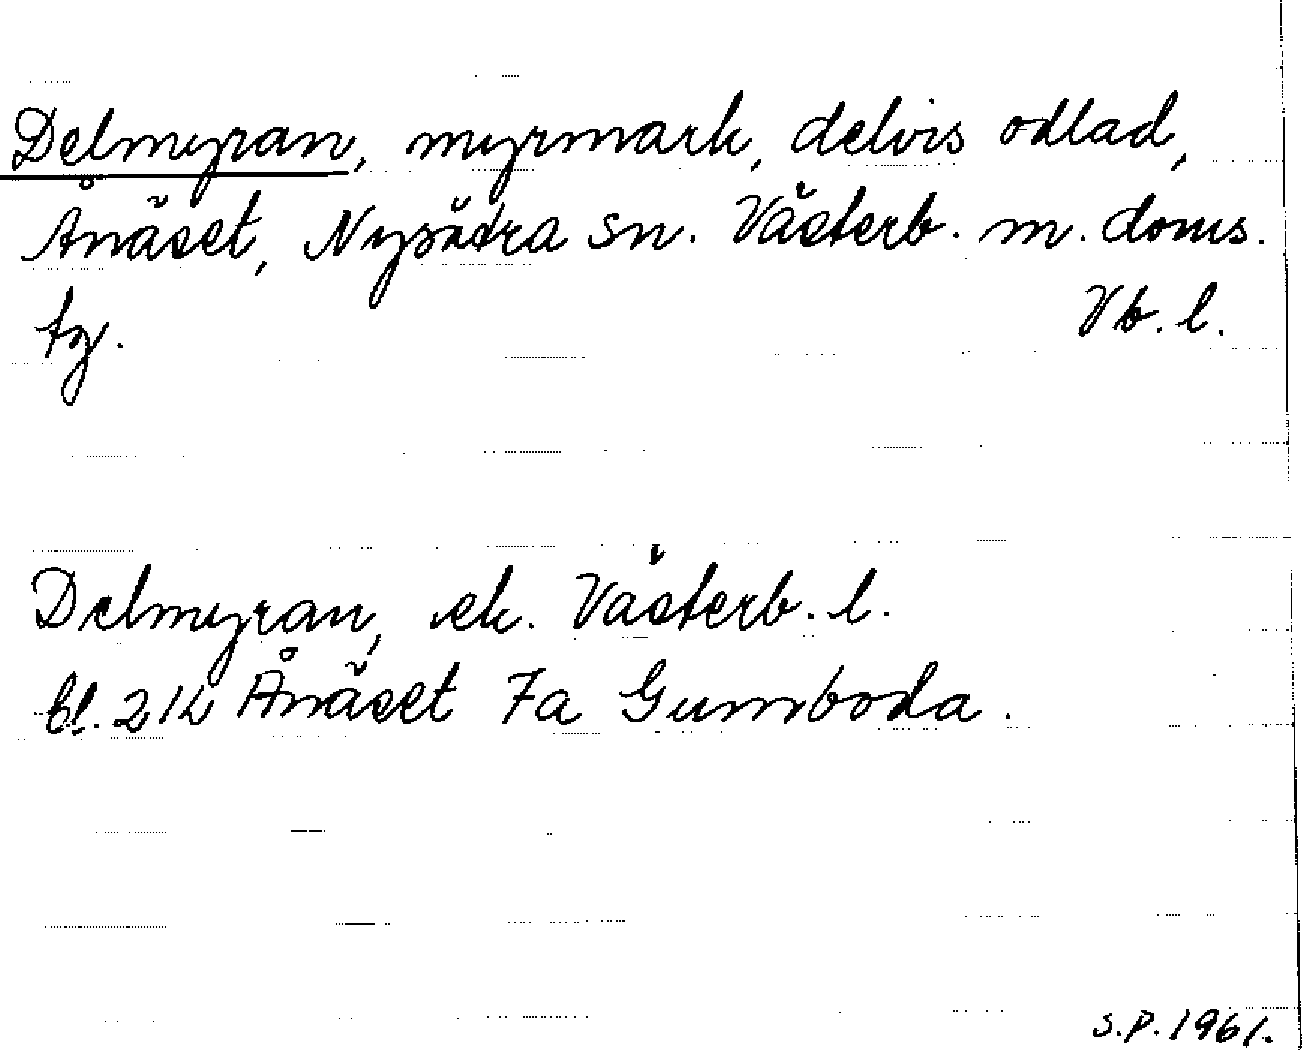 Delmyran, myrmark, delvis odlad,
Ånäset, Nysätra sn. Västerb. m. doms.
tg. Vb. l.
Delmyran, ek. Västerb. l.
bl. 214 Ånäset 7a Gumboda.
S.P. 1961.